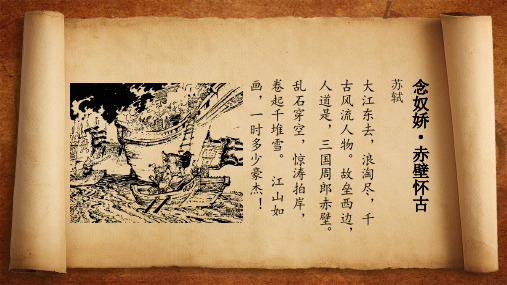 念奴娇·赤壁怀古
苏轼
大江东去，浪淘尽，千
古风流人物。故垒西边，
人道是，三国周郎赤壁。
乱石穿空，惊涛拍岸，
卷起千堆雪。 江山如
画，一时多少豪杰！